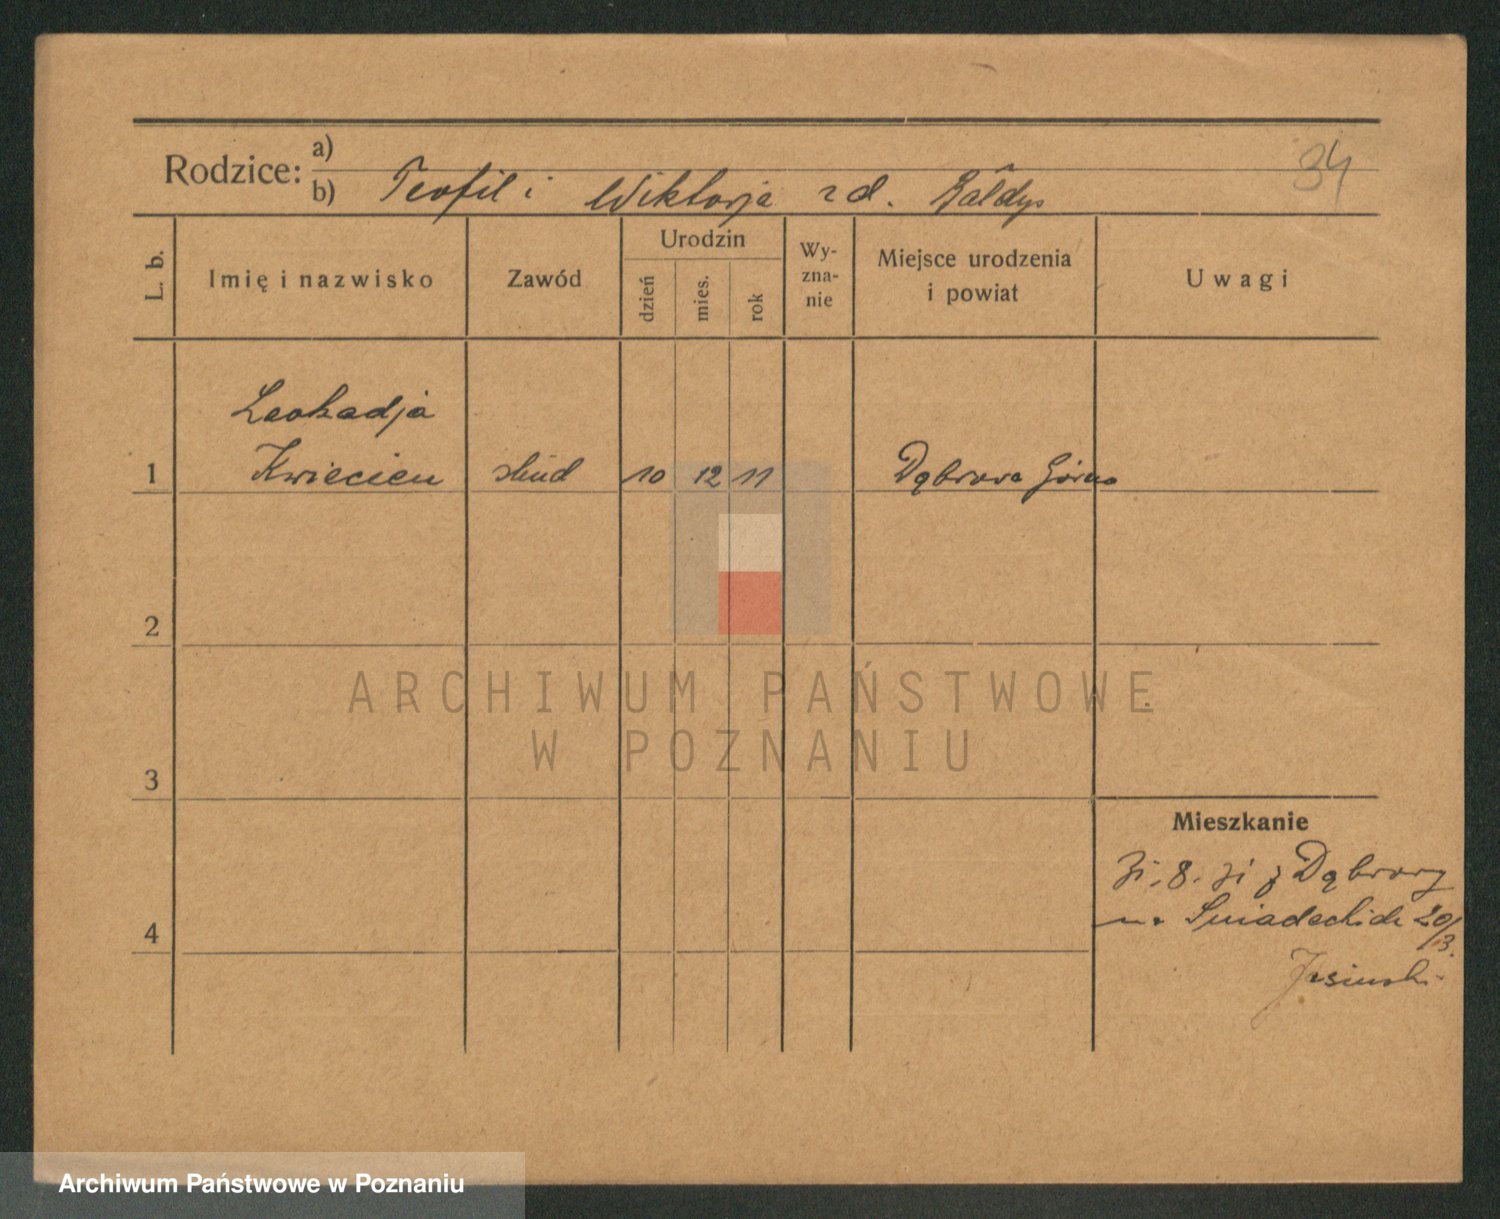 Rodzice: a)
b) Teofil i Wiktorja zd. Bałdys
34
L. b.
Imię i nazwisko
Zawód
Urodzin
dzień
mies.
rok
Wy-
zna-
nie
Miejsce urodzenia
i powiat
Uwagi
Leokadja
1 Kwiecien stud 10 12 11 Dąbrowa Górna
2
3
4
Mieszkanie
31. 8. 31 z Dąbrowy
Sniadeckich 20/
13.
Jasinsk
ARCHIWUM PAŃSTWOWE
W POZNANIU
Archiwum Państwowe w Poznaniu